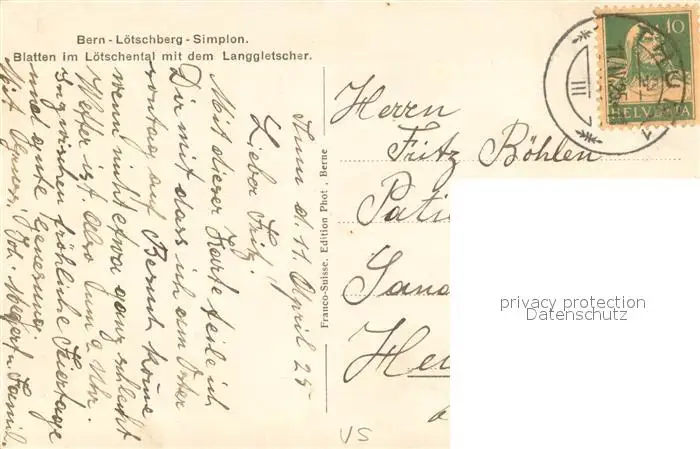 Bern - Lötschberg - Simplon.
Blatten im Lötschental mit dem Langgletscher.
Thun d. 11. April 25
Lieber Fritz.
Mit dieser Karte teile ich
Dir mit dass ich den Oster
sontag auf Besuch kome
wenn nicht etwa ganz schlecht
Wetter ist. Also zum 2 Uhr.
Inzwischen fröhliche Feiertage
und gute Genesung.
Mit Gruss, Joh. u. Famil.
Franco-Suisse, Edition Phot., Berne
Herrn
Fritz Böhlen
Pati
Sana
Hei
THUN
III
10
HELVETIA
VS
privacy protection
Datenschutz